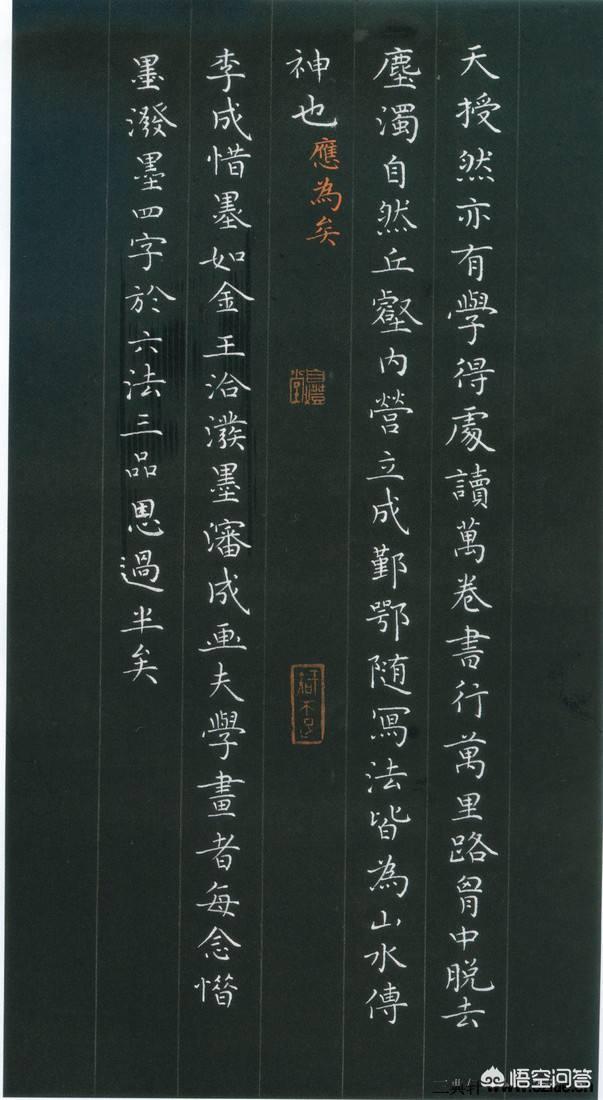 天授然亦有學得處讀萬卷書行萬里路胷中脱去
塵濁自然丘壑内營立成鄞鄂随冩法皆為山水傳
神也
應為矣
李成惜墨如金王洽潑墨瀋成画夫學畫者每念惜
墨潑墨四字於六法三品思過半矣
悟空问答